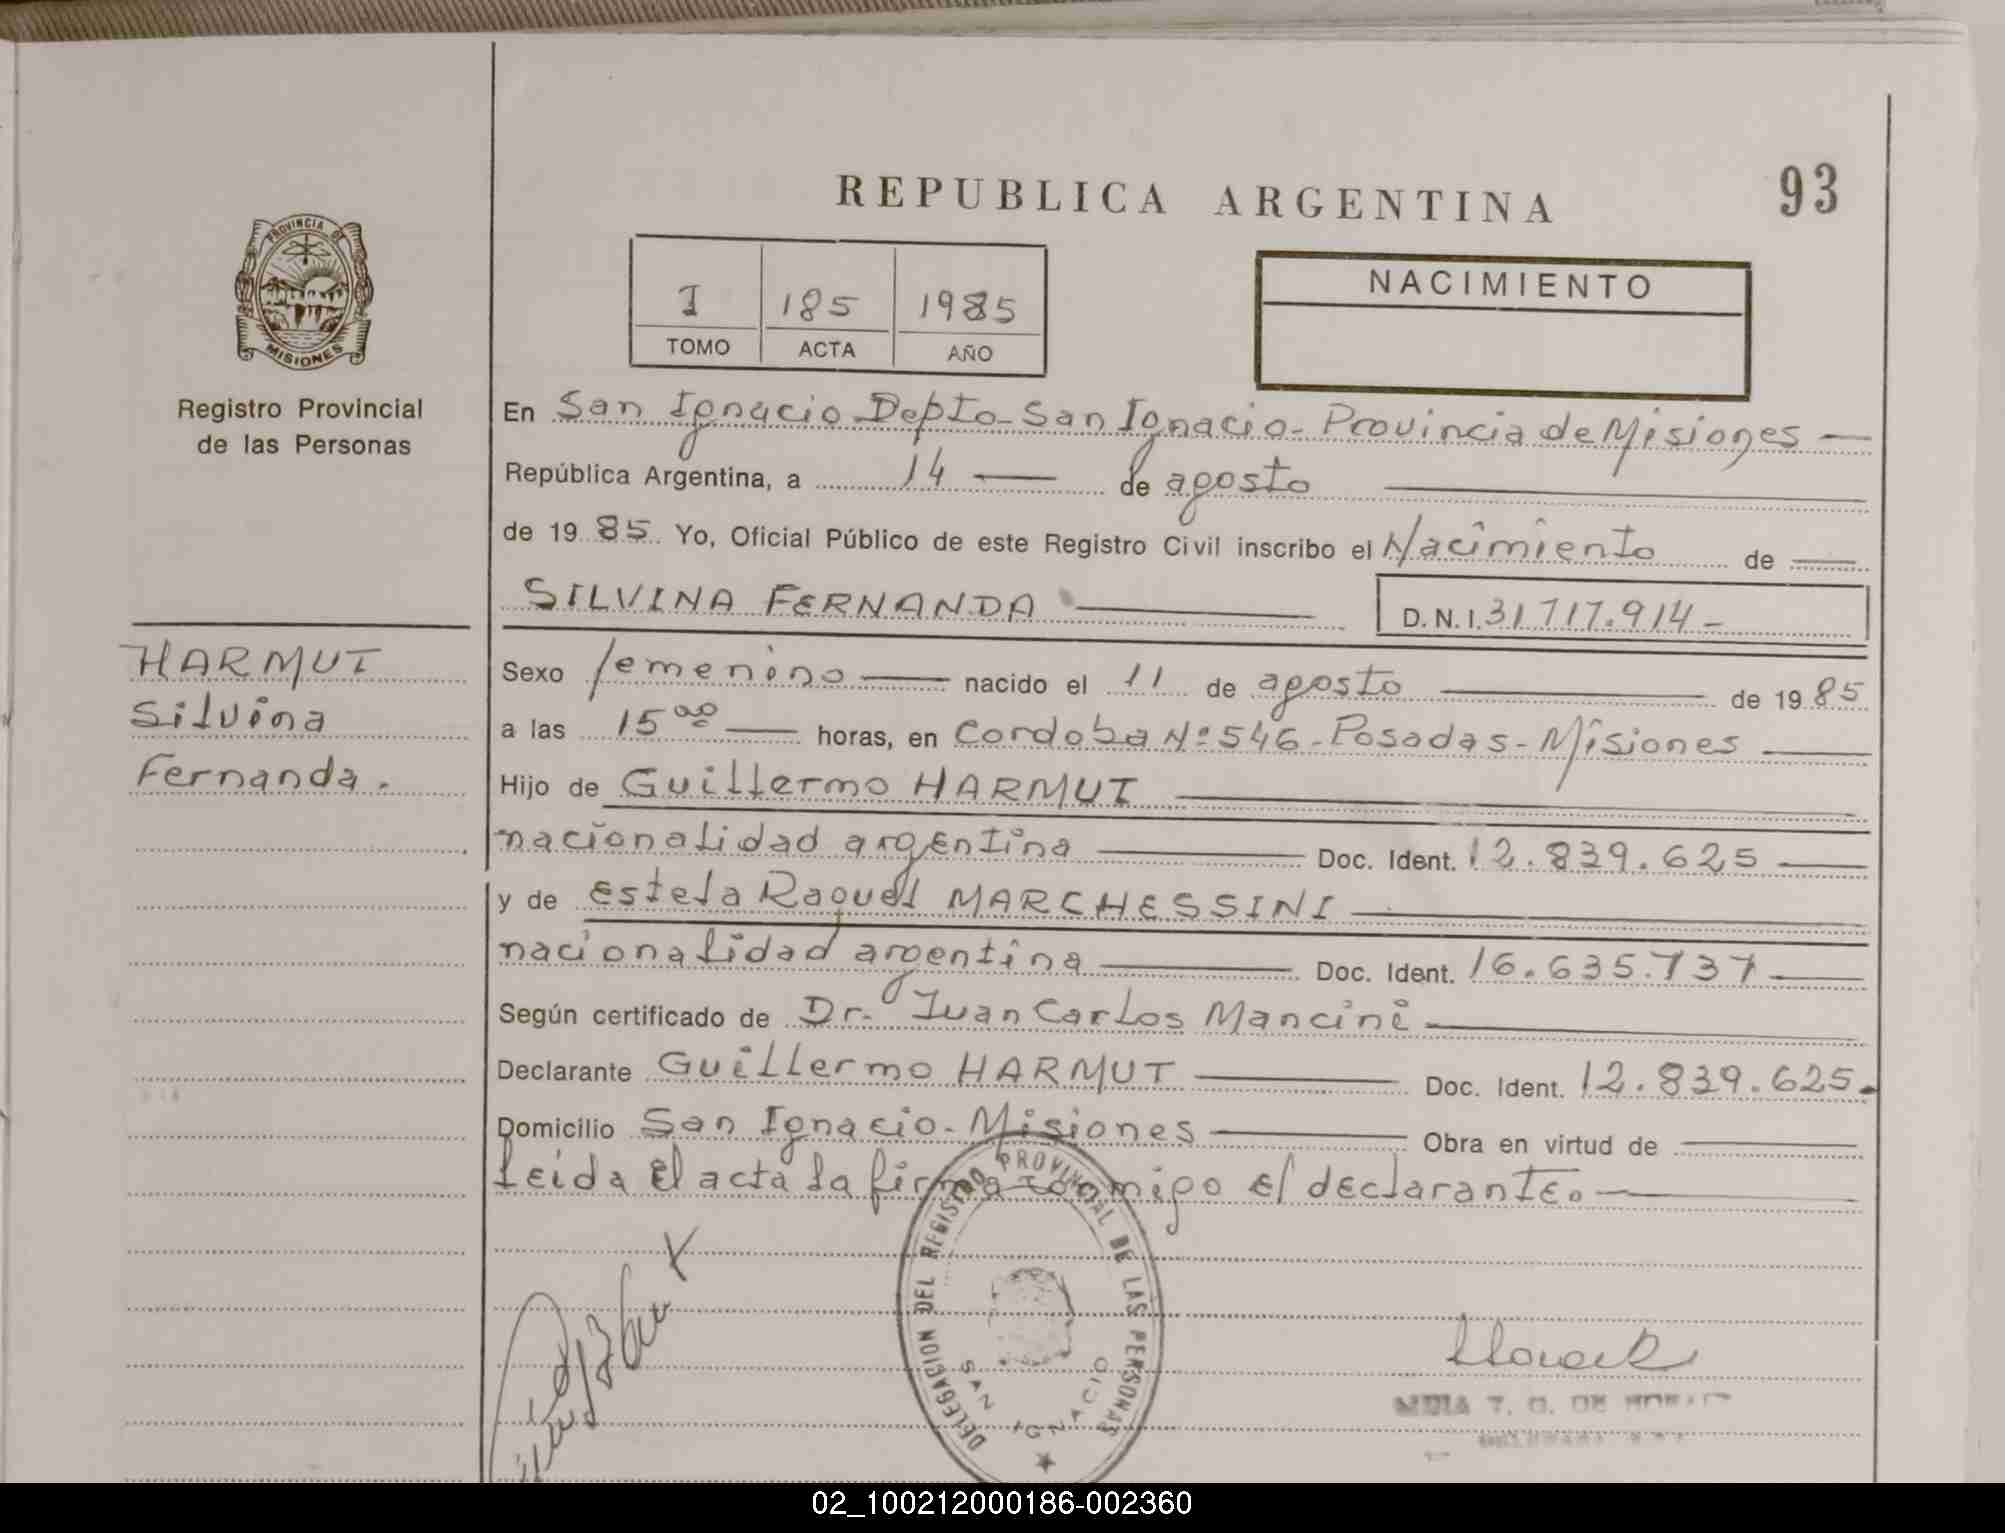 REPUBLICA ARGENTINA
93
PROVINCIA DE
MISIONES
Registro Provincial
de las Personas
I 185 1985
TOMO ACTA AÑO
NACIMIENTO
En San Ignacio Depto- San Ignacio- Provincia de Misiones —
República Argentina, a 14 — de agosto —
de 1985 Yo, Oficial Público de este Registro Civil inscribo el Nacimiento de —
SILVINA FERNANDA — D.N.I. 31717.914-
HARMUT
Silvina
Fernanda.
Sexo femenino — nacido el 11 de agosto — de 1985
a las 15 00 — horas, en Cordoba Nº 546- Posadas- Misiones —
Hijo de Guillermo HARMUT —
nacionalidad argentina — Doc. Ident. 12.839.625 —
y de Estela Raquel MARCHESSINI —
nacionalidad argentina — Doc. Ident. 16.635.737 —
Según certificado de Dr. Juan Carlos Mancini —
Declarante Guillermo HARMUT — Doc. Ident. 12.839.625.
Domicilio San Ignacio- Misiones — Obra en virtud de —
Leida el acta la firma conmigo el declarante. —
DELEGACION DEL REGISTRO PROVINCIAL DE LAS PERSONAS
SAN IGNACIO
02_100212000186-002360